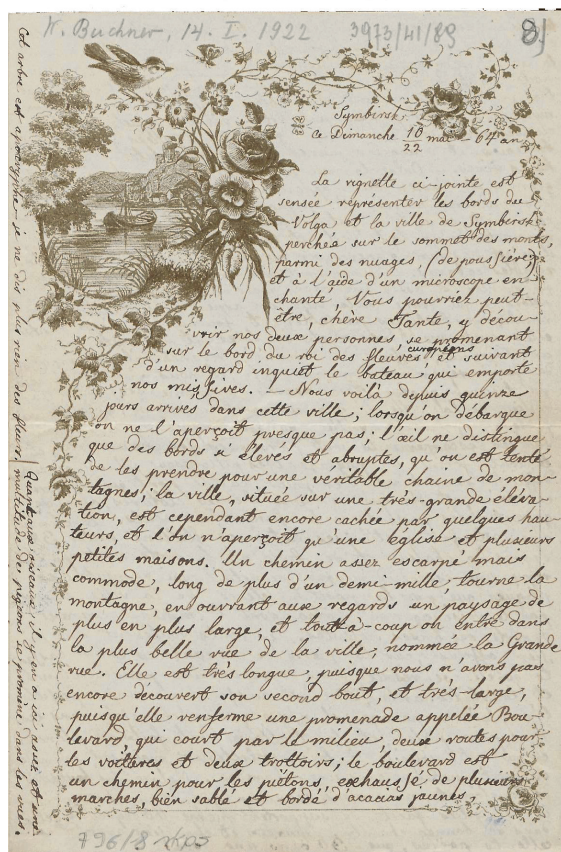 W. Buchner, 14. I. 1922 3973/41/89
8)
Symbirsk,
ce Dimanche 10/22 mai – 64 an
La vignette ci-jointe est
sensée représenter les bords du
Volga et la ville de Symbirsk
perchée sur le sommet des monts,
parmi des nuages, (de poussière)
et à l'aide d'un microscope en-
chanté, Vous pourriez peut-
être, chère Tante, y décou-
vrir nos deux personnes, se promenant
sur le bord du roi des fleuves européens et suivant
d'un regard inquiet le bateau qui emporte
nos missives. – Nous voilà depuis quinze
jours arrivés dans cette ville; lorsqu'on débarque
on ne l'aperçoit presque pas; l'œil ne distingue
que des bords si élevés et abruptes, qu'on est tenté
de les prendre pour une veritable chaine de mon-
tagnes; la ville, située sur une très-grande éléva-
tion, est cependant encore cachée par quelques hau-
teurs, et l'on n'aperçoit qu'une église et plusieurs
petites maisons. Un chemin assez escarpé mais
commode, long de plus d'un demi-mille, tourne la
montagne, en ouvrant aux regards un paysage de
plus en plus large, et tout-à-coup on entre dans
la plus belle rue de la ville, nommée la Grande
rue. Elle est très longue, puisque nous n'avons pas
encore découvert son second bout, et très-large,
puisqu'elle renferme une promenade appelée Bou-
levard, qui court par le milieu, deux routes pour
les voitures et deux trottoirs; le boulevard est
un chemin pour les piétons, exhaussé de plusieurs
marches, bien sablé et bordé d'acacias jaunes.
Cet arbre est apocryphe – je ne dis plus rien des fleurs!
Quant aux oiseaux, il y en a ici assez et une
multitude de pigeons se promène dans les rues.
796/8